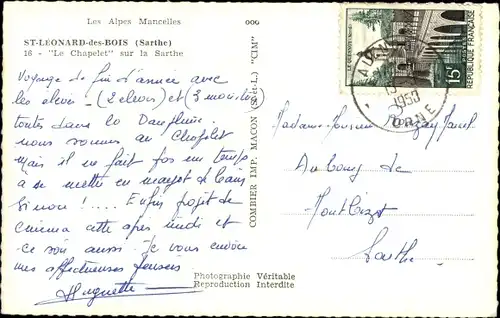 Les Alpes Mancelles
ST-LÉONARD-des-BOIS (Sarthe)
16 - "Le Chapelet" sur la Sarthe
Voyage de fin d'année avec
les élèves - (2 élèves) et (3 monitrices)
toutes dans la Dauphine
nous sommes au Chapelet
Mais il ne fait pas un temps
à se mettre en maillot de bain
Sinon !... Enfin projet de
cinéma cette après midi et
ce soir aussi. Je vous envoie
mes affectueuses pensées
Huguette
COMBIER IMP. MACON (S.-et-L.) "CIM"
Photographie Véritable
Reproduction Interdite
15F
REPUBLIQUE FRANÇAISE
ORNE
Madame Monsieur
Au Bourg de
Montbizot
Sarthe